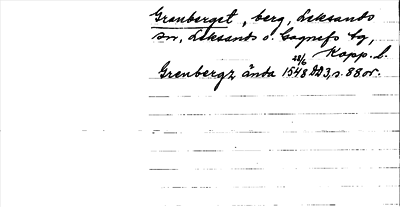 Granberget, berg, Leksands
sn, Leksands o. Gagnefs tg,
Kopp. l.
28/6
Grenbergz ända 1548 DD3, s. 88 or.